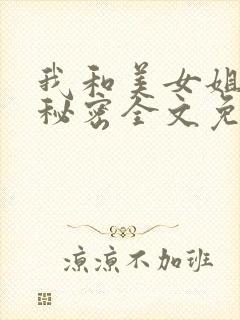 我和美女姐
秘密全文免
凉凉不加班